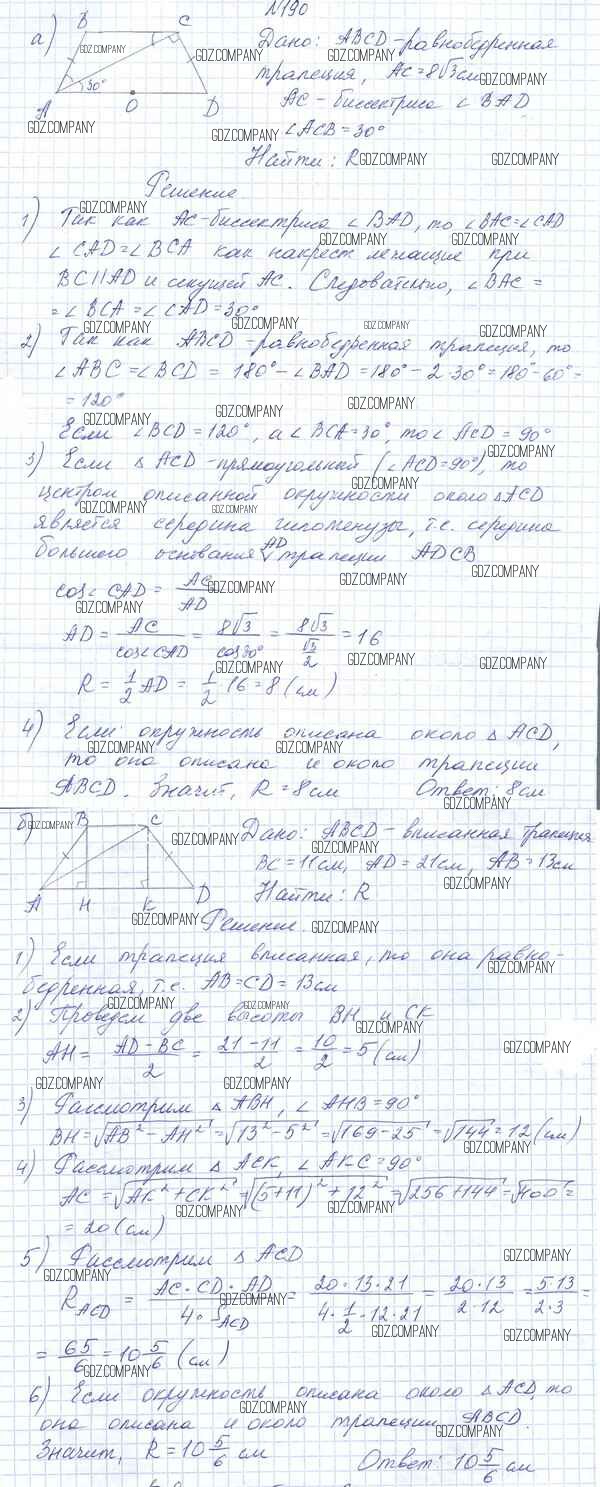 №190
а) Дано: ABCD – равнобедренная
трапеция, AC = 8√3 см
AC – биссектриса ∠BAD
∠ACB = 30°
Найти: R
B C
30°
A O D
Решение
1) Так как AC – биссектриса ∠BAD, то ∠BAC = ∠CAD
∠CAD = ∠BCA как накрест лежащие при
BC || AD и секущей AC. Следовательно, ∠BAC =
= ∠BCA = ∠CAD = 30°
2) Так как ABCD – равнобедренная трапеция, то
∠ABC = ∠BCD = 180° – ∠BAD = 180° – 2·30° = 180° – 60° =
= 120°
Если ∠BCD = 120°, а ∠BCA = 30°, то ∠ACD = 90°
3) Если △ACD – прямоугольной (∠ACD = 90°), то
центром описанной окружности около △ACD
является середина гипотенузы, т.е. середина
большого основания AD трапеции ADCB
cos∠CAD = AC/AD
AD = AC/cos∠CAD = 8√3/cos30° = 8√3/(√3/2) = 16
R = 1/2 AD = 1/2 · 16 = 8 (см)
4) Если окружность описана около △ACD,
то она описана и около трапеции
ABCD. Значит, R = 8 см Ответ: 8 см
б) Дано: ABCD – вписанная трапеция
BC = 11 см, AD = 21 см, AB = 13 см
Найти: R
B C
A H K D
Решение.
1) Если трапеция вписанная, то она равно-
бедренная, т.е. AB = CD = 13 см
2) Проведем две высоты BH и CK
AH = (AD – BC)/2 = (21 – 11)/2 = 10/2 = 5 (см)
3) Рассмотрим △ABH, ∠AHB = 90°
BH = √(AB² – AH²) = √(13² – 5²) = √(169 – 25) = √144 = 12 (см)
4) Рассмотрим △ACK, ∠AKC = 90°
AC = √(AK² + CK²) = √((5+11)² + 12²) = √(256 + 144) = √400 =
= 20 (см)
5) Рассмотрим △ACD
R_ACD = (AC · CD · AD)/(4 · S_ACD) = (20 · 13 · 21)/(4 · 1/2 · 12 · 21) = (20 · 13)/(2 · 12) = (5·13)/(2·3) =
= 65/6 = 10 5/6 (см)
6) Если окружность описана около △ACD, то
она описана и около трапеции ABCD.
Значит, R = 10 5/6 см
Ответ: 10 5/6 см
GDZ.COMPANY